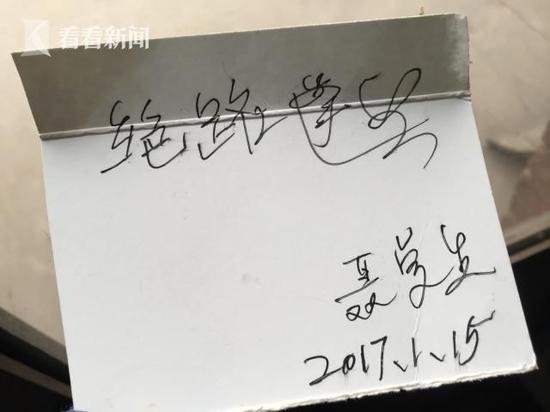 看看新闻
绝路逢生
聂学生
2017.1.15